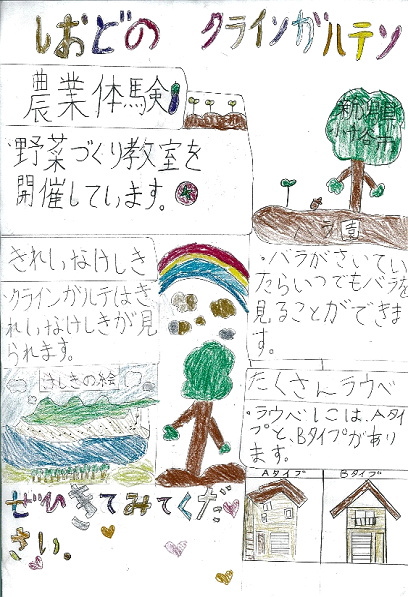 しおどの クラインガルテン
農業体験
野菜づくり教室を
開催しています。
園
・バラがさいてい
たらいつでもバラを
見ることができま
す。
きれいなけしき
・クラインガルテはき
れいなけしきが見
られます。
けしきの絵
たくさんラウベ
・ラウベしこは、Aタイ
プと、Bタイプがあり
ます。
Aタイプ Bタイプ
ぜひきてみてくだ
さい。